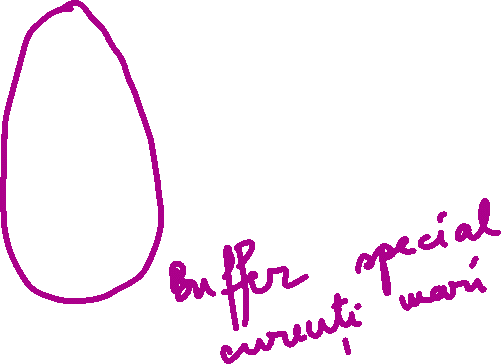 Buffer special
curenți mari